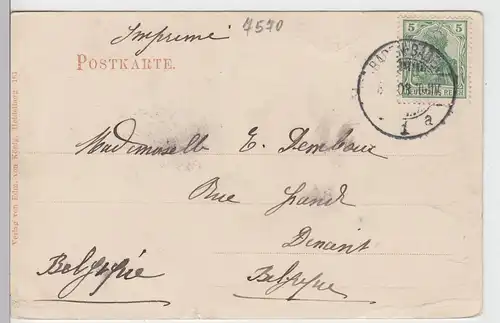 Imprimé
7570
POSTKARTE.
5
BADEN-BADEN
1 a
Mademoiselle E. Dembour
Rue Grande
Dinant
Belgique
Belgique
Verlag von Edm. von König, Heidelberg